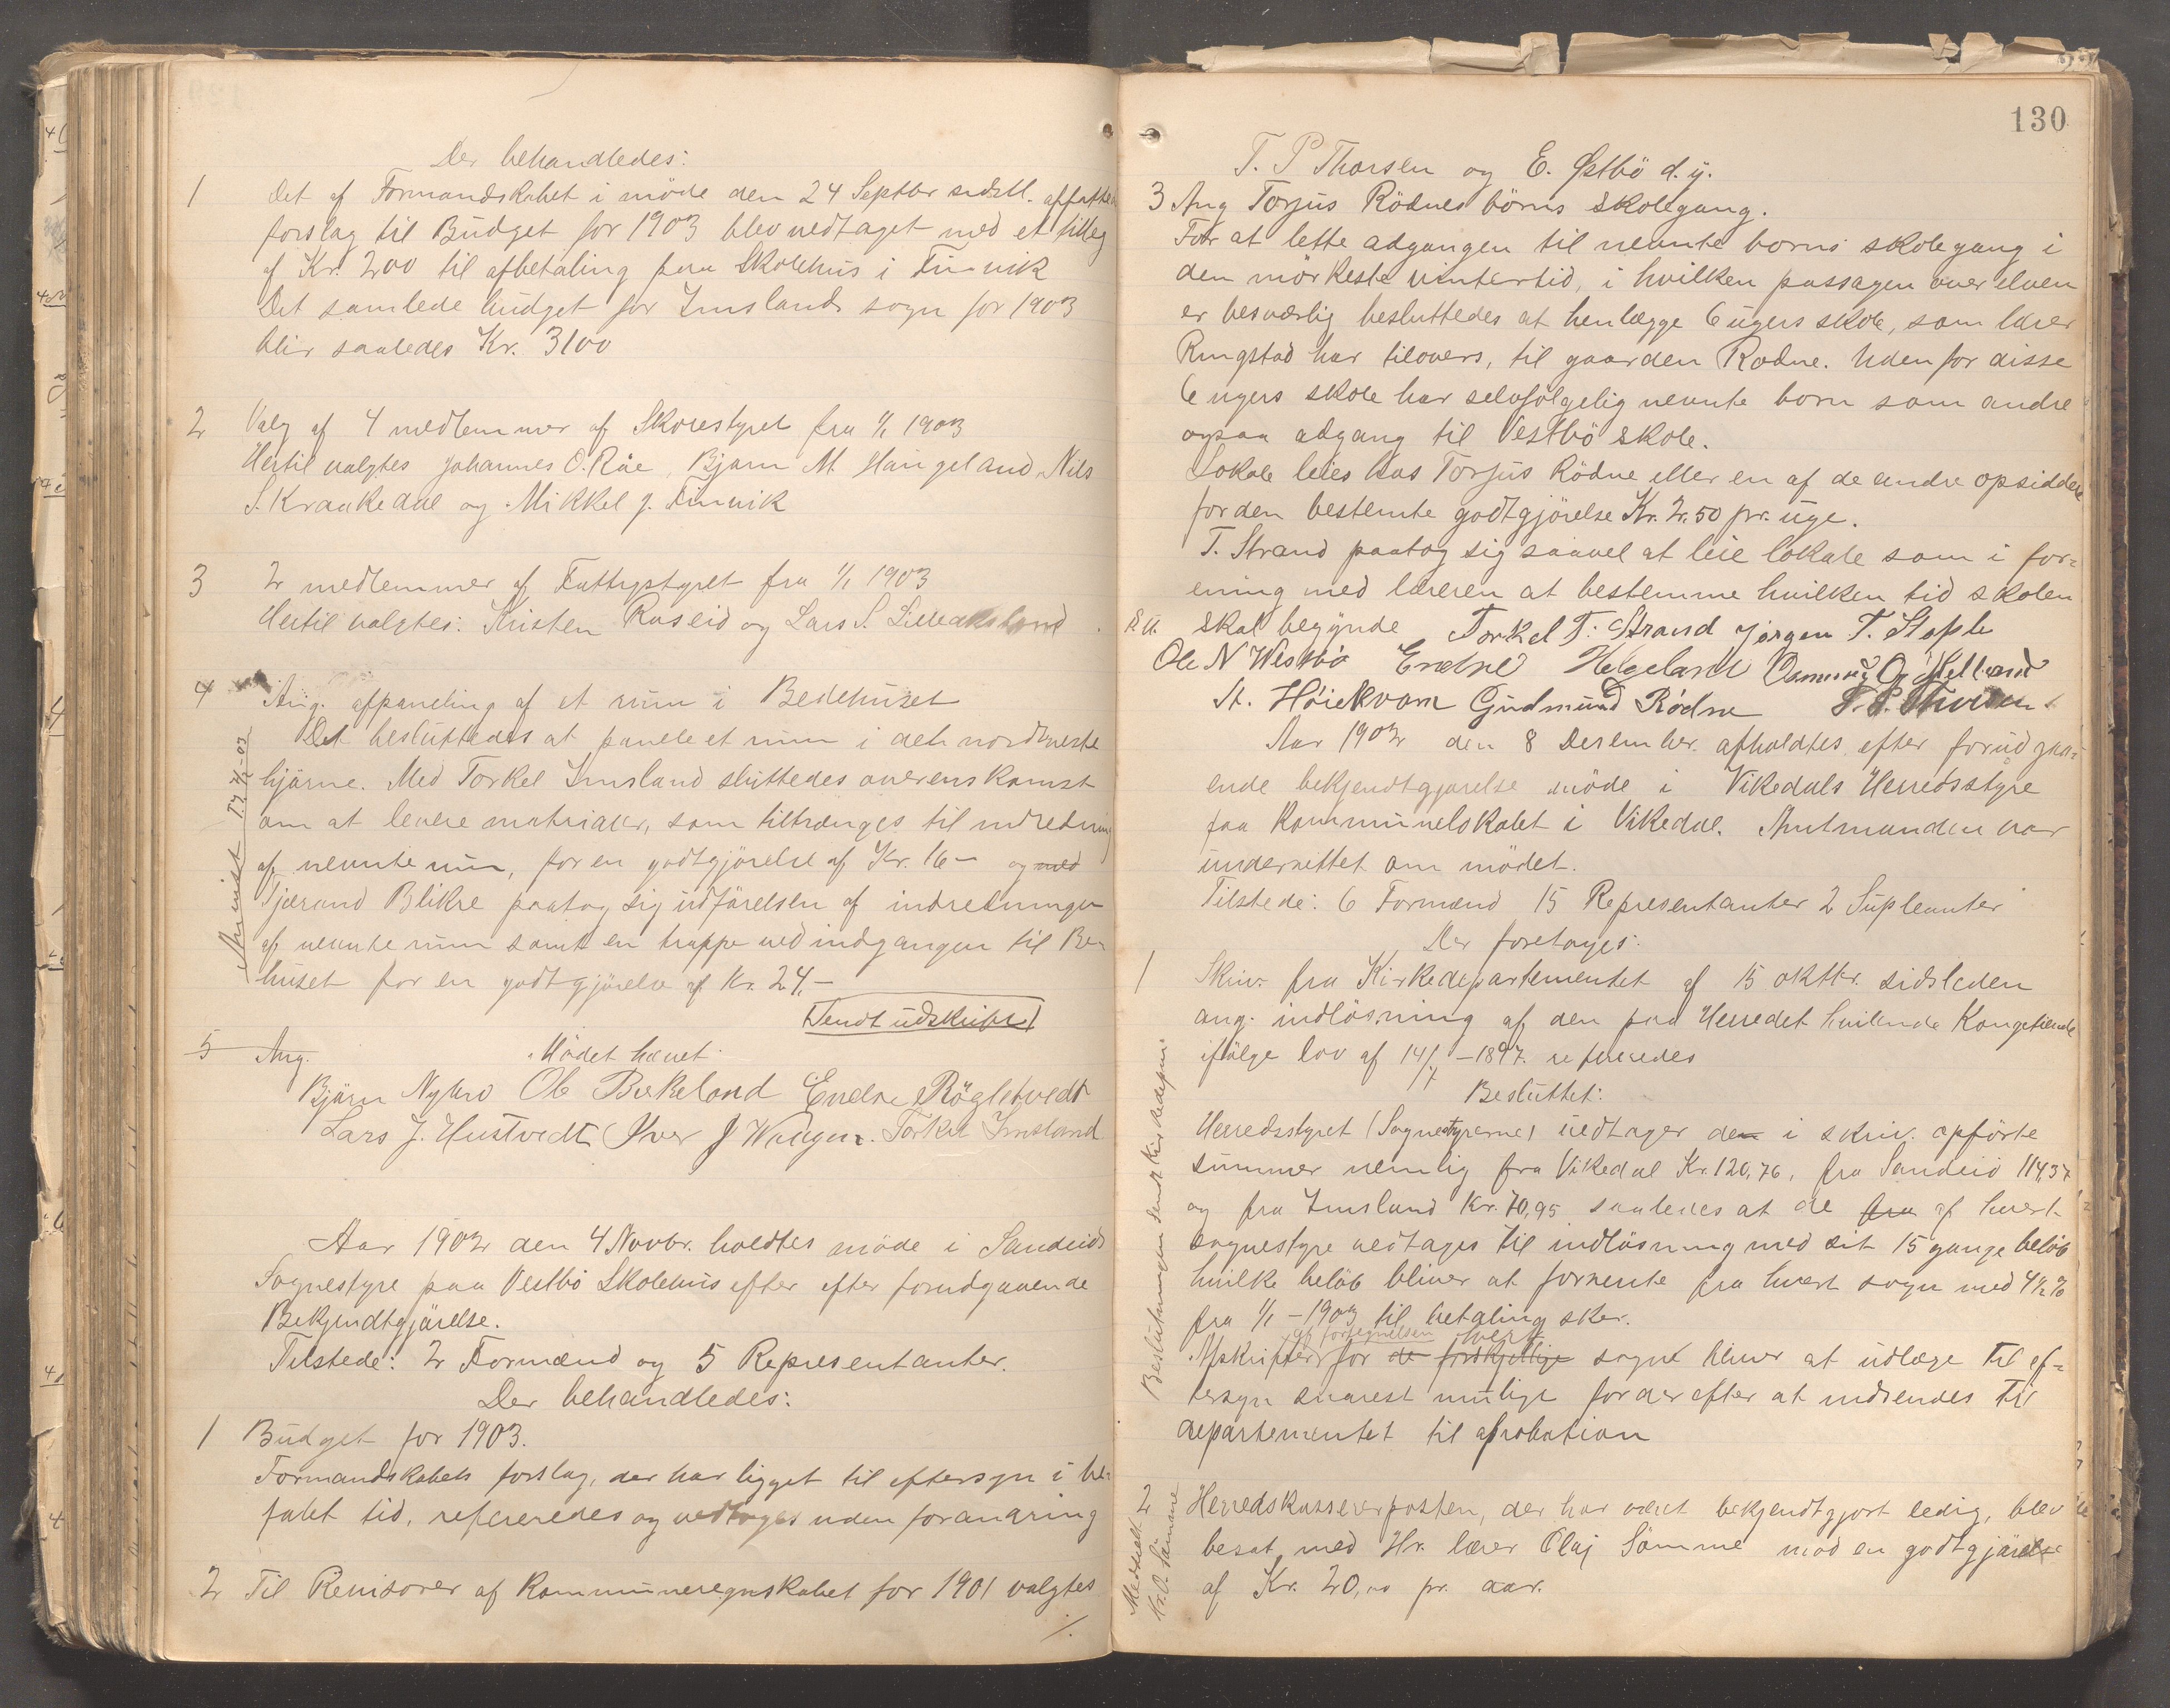 Der behandledes:
1 Det af Formandskabet i möde den 24 Septbr sidstl. affattede
forslag til Budget for 1903 blev vedtaget med et tillæg
af Kr. 200 til afbetaling paa Skolehus i Finvik
Det samlede budget for Imslands sogn for 1903
blir saaledes Kr. 3100
2 Valg af 4 medlemmer af Skolestyret fra 1/1 1903
Hertil valgtes Johannes O. Råe, Bjarn M. Haugeland, Nils
S. Kraakedal og Mikkel J. Finvik
3 2 medlemmer af Fattigstyret fra 1/1 1903
Hertil valgtes: Kristen Raseid og Lars S. Lilleaksland
4 Ang. afpaneling af et rum i Bedehuset
Det besluttedes at panele et rum i det nordvestre
hjörne. Med Torkel Imsland sluttedes overenskomst
om at levere matrialer, som tiltrænges til indredning
af nevnte rum, for en godtgjörelse af Kr. 16- og med
Tjerand Blikre paatog sig udförelsen af indredningen
af nevnte rum samt en trappe ved indgangen til Be-
huset for en godtgjörelse af Kr. 24,-
Sendt udskrift
5 Ang. Mödet hævet.
Bjørn Nybru Ole Birkeland Endre Rögletvedt
Lars J. Hustvedt Iver J Torkel Imsland
Aar 1902 den 4 Novbr. holdtes möde i Sandeids
Sognestyre paa Vestbö Skolehus efter efter forudgaaende
Bekjendtgjörelse.
Tilstede: 2 Formænd og 5 Representanter.
Der behandledes:
1 Budget for 1903.
Formandskabets forslag, der har ligget til eftersyn i be-
falet tid, refereredes og vedtoges uden forandring
2 Til Revisorer af Kommuneregnskabet for 1901 valgtes
./.
130
T. P Thorsen og E. Østbö d. y.
3 Ang Torjus Rödnes börns skolegang.
For at lette adgangen til nevnte borns skolegang i
den mörkeste vintertid, i hvilken passagen over elven
er besværlig besluttedes at henlægge 6 ugers skole, som lærer
Ringstad har tilovers, til gaarden Rödne. Uden for disse
6 ugers skole har selvfölgelig nevnte born som andre
ogsaa adgang til Vestbö skole.
Lokale leies hos Torjus Rödne eller en af de andre opsiddere
for den bestemte godtgjörelse Kr. 2.50 pr. uge.
T. Strand paatog sig saavel at leie lokale som i for-
ening med læreren at bestemme hvilken tid skolen
skal begynde Torkel T. Strand Jørgen T. Stople
Ole N Westbö Endre Helgeland
St. Höiekvam Gudmund Rödne T. P. Thorsen
Aar 1902 den 8 Desember afholdtes efter forudgaa-
ende bekjendtgjørelse möde i Vikedals Herredsstyre
paa Kommunelokalet i Vikedal. Amtmanden var
underrettet om mödet.
Tilstede: 6 Formænd 15 Representanter 2 Supleanter
Der foretoges:
1 Skriv. fra Kirkedepartementet af 15 oktbr. sidsleden
ang. indlösning af den paa Herredet hvilende Kongetiende
ifölge lov af 14/7 - 1897. refereredes
Besluttet:
Herredsstyret (Sognestyrerne) vedtager den i skriv. opförte
summer nemlig fra Vikedal Kr. 120,76, fra Sandeid 114,37
og fra Imsland Kr. 70,95 saaledes at de fra af hvert
sognestyre vedtages til indlösning med sit 15 gange belöb
hvilke belöb bliver at forrente fra hvert sogn med 4 1/2 %
fra 1/1 - 1903 til betaling sker.
af fortegnelsen hvert
Afskrifter for de forskjellige sogne bliver at udlæge til ef-
tersyn snarest mulige for derefter at indsendes til
departementet til aprobation
Beslutningen sendt Kirkedepm.
2 Herredskassererposten, der har været bekjendtgjort ledig, blev
besat med Hr. lærer Olaj Sömme mod en godtgjörelse
af Kr. 20,00 pr. aar.
Meddelt
Hr. O. Sömme